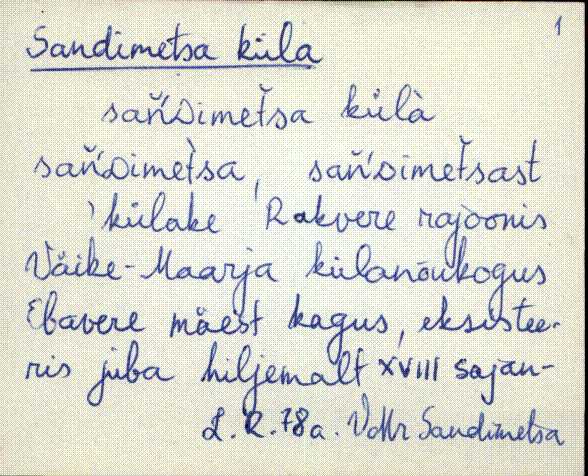 1
Sandimetsa küla
sań̆Dimet̆sa külà
sań̆Dimet̀sa, sań̆Dimet̆sast
'külake Rakvere rajoonis
Väike-Maarja külanõukogus
Ebavere mäest kagus, eksistee-
ris juba hiljemalt XVIII sajan-
L.R.78a. VMr Sandimetsa